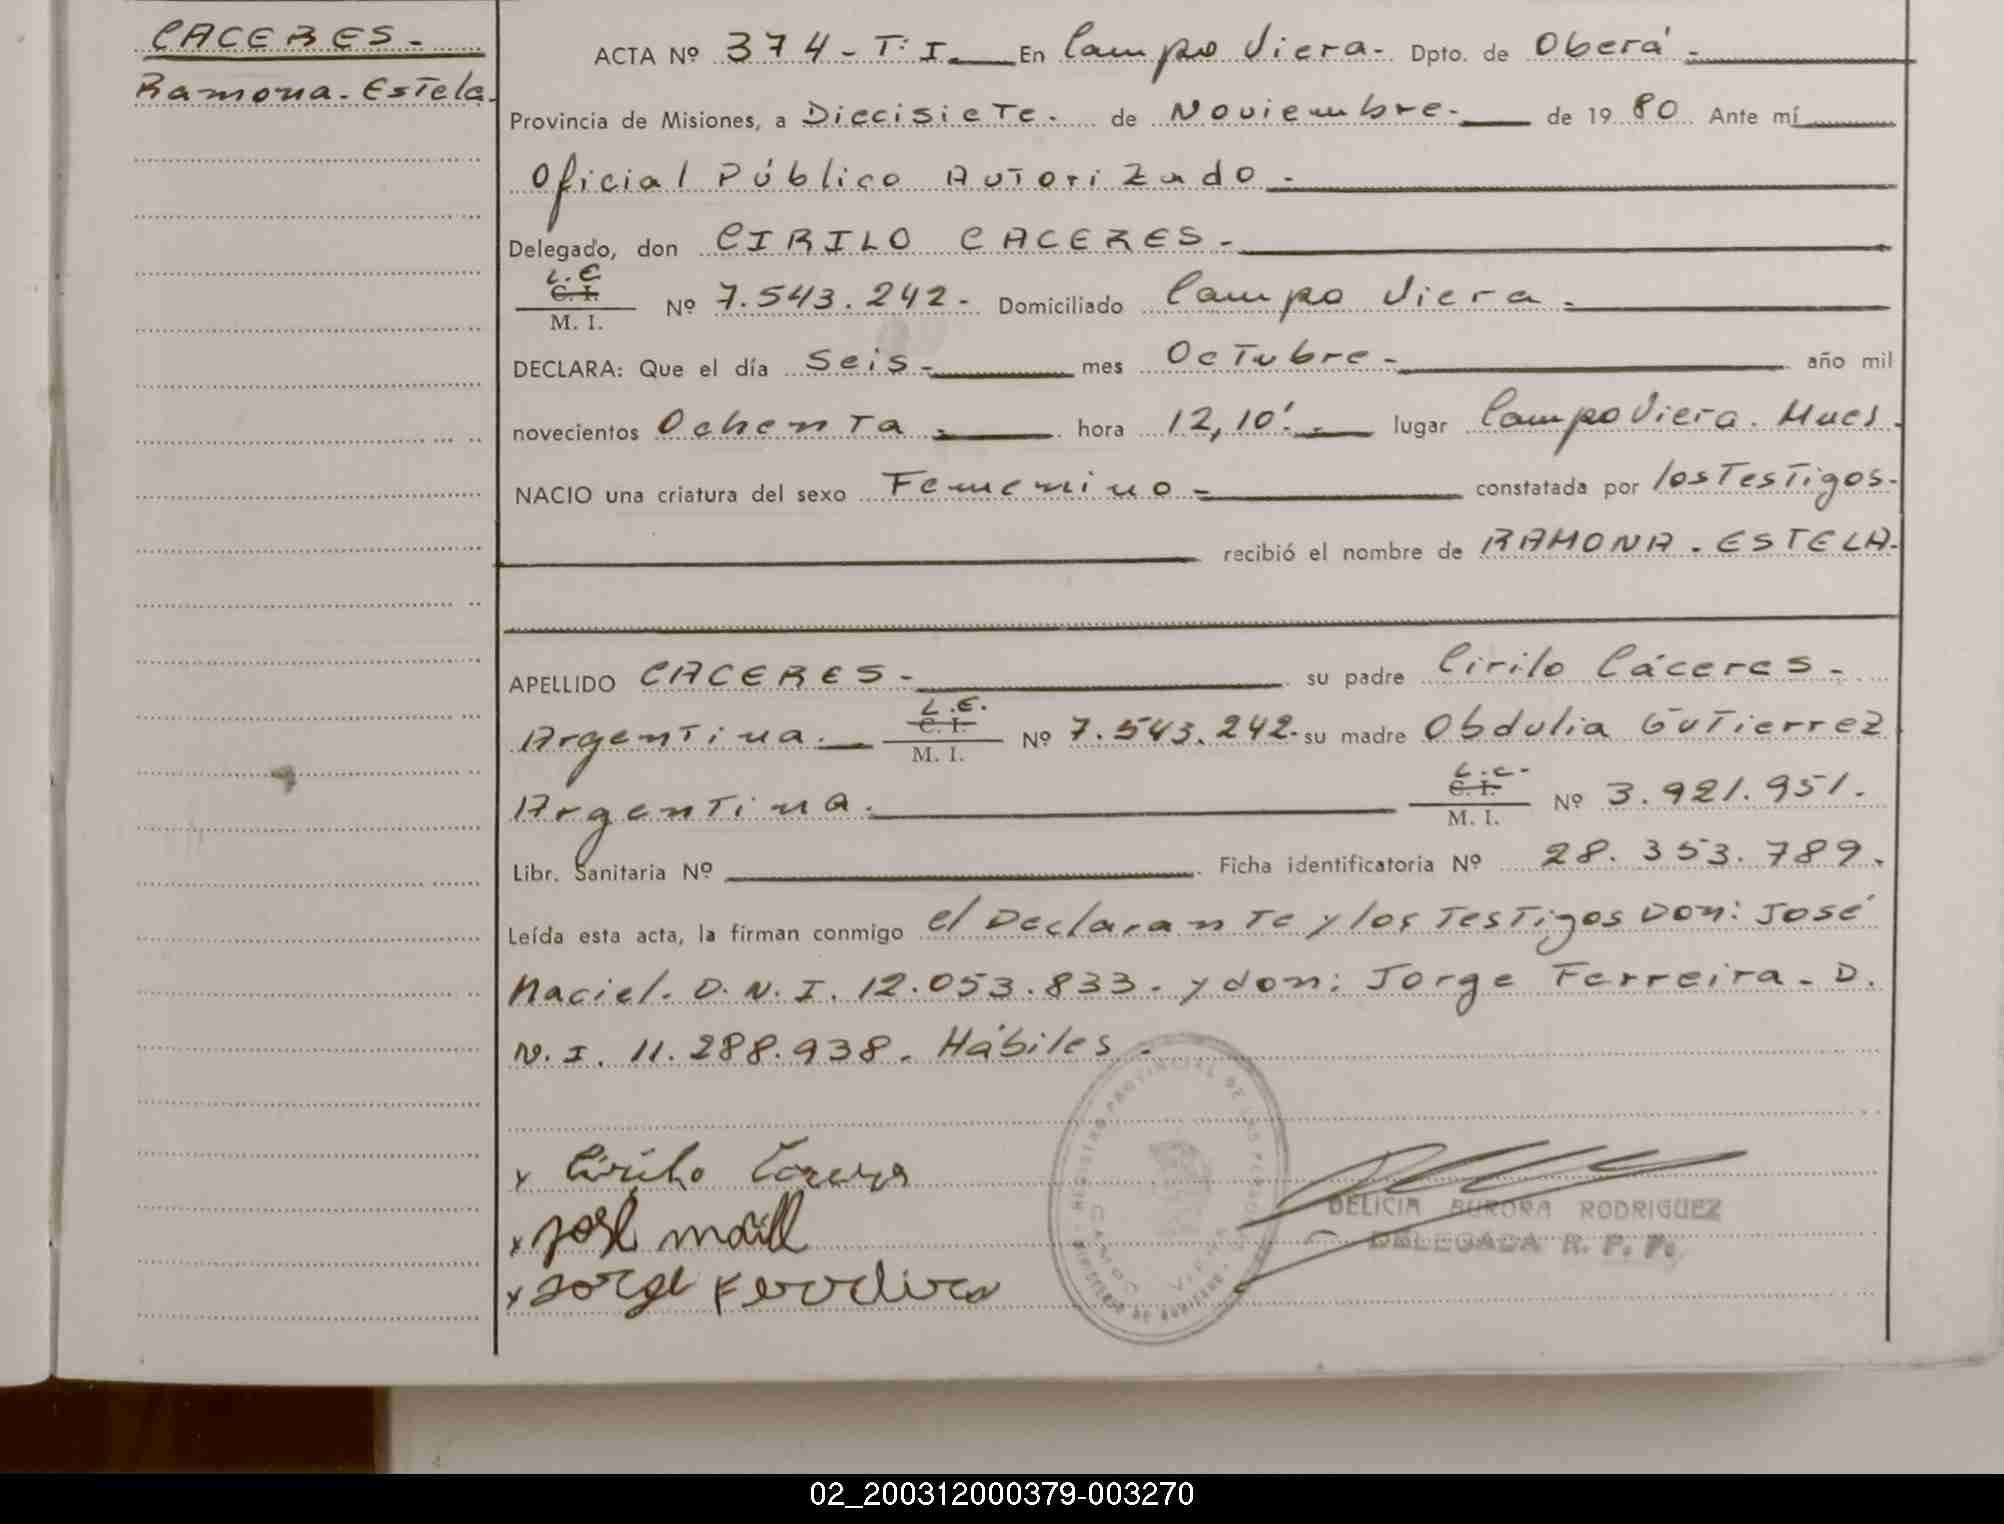 CACERES.-
Ramona. Estela.
ACTA Nº 374- T: I. En Campo Viera.- Dpto. de Oberá.-
Provincia de Misiones, a Diecisiete.- de Noviembre.- de 19 80 Ante mí
Oficial Público Autorizado.-
Delegado, don CIRILO CACERES.-
L.E
C. I.
M. I.
Nº 7.543.242.- Domiciliado Campo Viera.-
DECLARA: Que el día Seis.- mes Octubre.- año mil
novecientos Ochenta.- hora 12,10'.- lugar Campo Viera. Mnes.
NACIO una criatura del sexo Femenino.- constatada por los Testigos.-
recibió el nombre de RAMONA. ESTELA.-
APELLIDO CACERES.- su padre Cirilo Cáceres.-
L.E.
C. I.
Argentina.- M. I. Nº 7.543.242.- su madre Obdulia Gutierrez
L.C.-
C. I.
Argentina.- M. I. Nº 3.921.951.
Libr. Sanitaria Nº Ficha identificatoria Nº 28.353.789.
Leída esta acta, la firman conmigo el Declarante y los Testigos Don: José
Maciel. D.N.I. 12.053.833. y don: Jorge Ferreira.- D.
N.I. 11.288.938. Hábiles.-
x Cirilo
x José
x Jorge Ferreira
REGISTRO PROVINCIAL DE LAS PERSONAS
CAMPO VIERA
MINISTERIO DE GOBIERNO
DELICIA AURORA RODRIGUEZ
DELEGADA R. P. P.
02_200312000379-003270